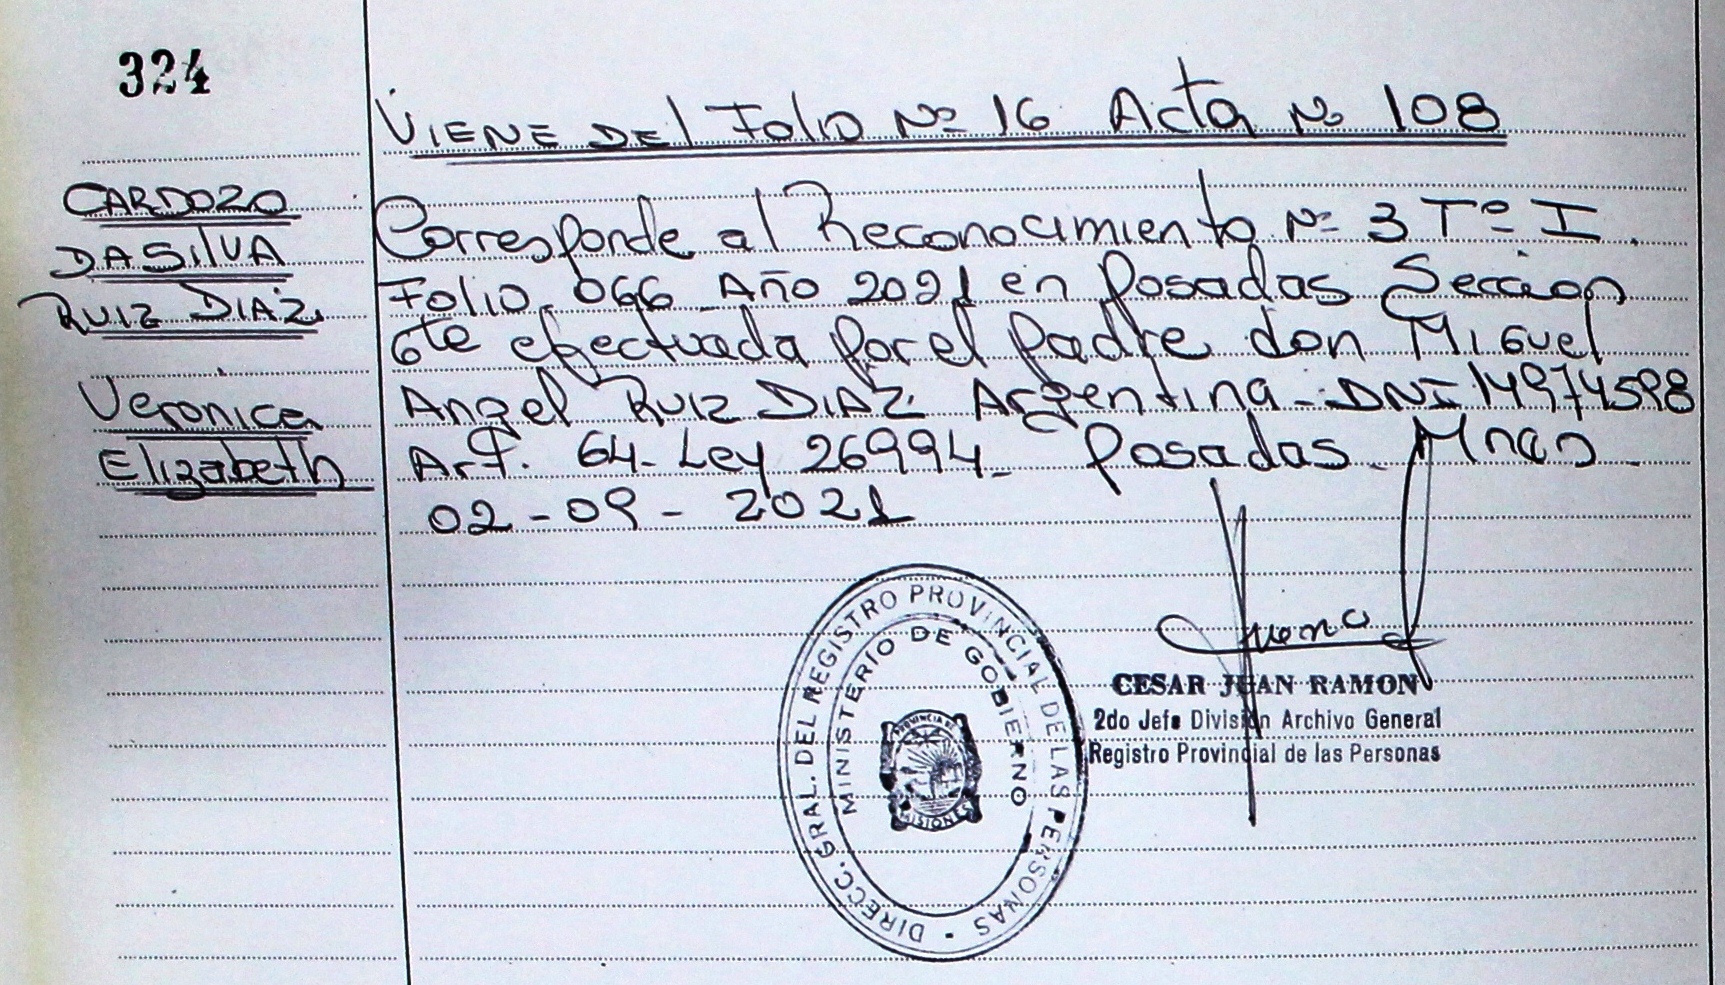 324
VIENE DEl Folio Nº 16 Acta Nº 108
CARDOZO
DASILVA
RUIZ DIAZ
Veronica
Elizabeth
Corresponde al Reconocimiento Nº 3 Tº I.
Folio 066 Año 2021 en Posadas Seccion
6ta efectuada por el padre don Miguel
Angel RUIZ DIAZ Argentina - DNI 14974598
Art. 64 - Ley 26994 - Posadas - Mnes -
02 - 09 - 2021
DIRECC. GRAL. DEL REGISTRO PROVINCIAL DE LAS PERSONAS -
MINISTERIO DE GOBIERNO
PROVINCIA DE
MISIONES
CESAR JUAN RAMON
2do Jefe División Archivo General
Registro Provincial de las Personas